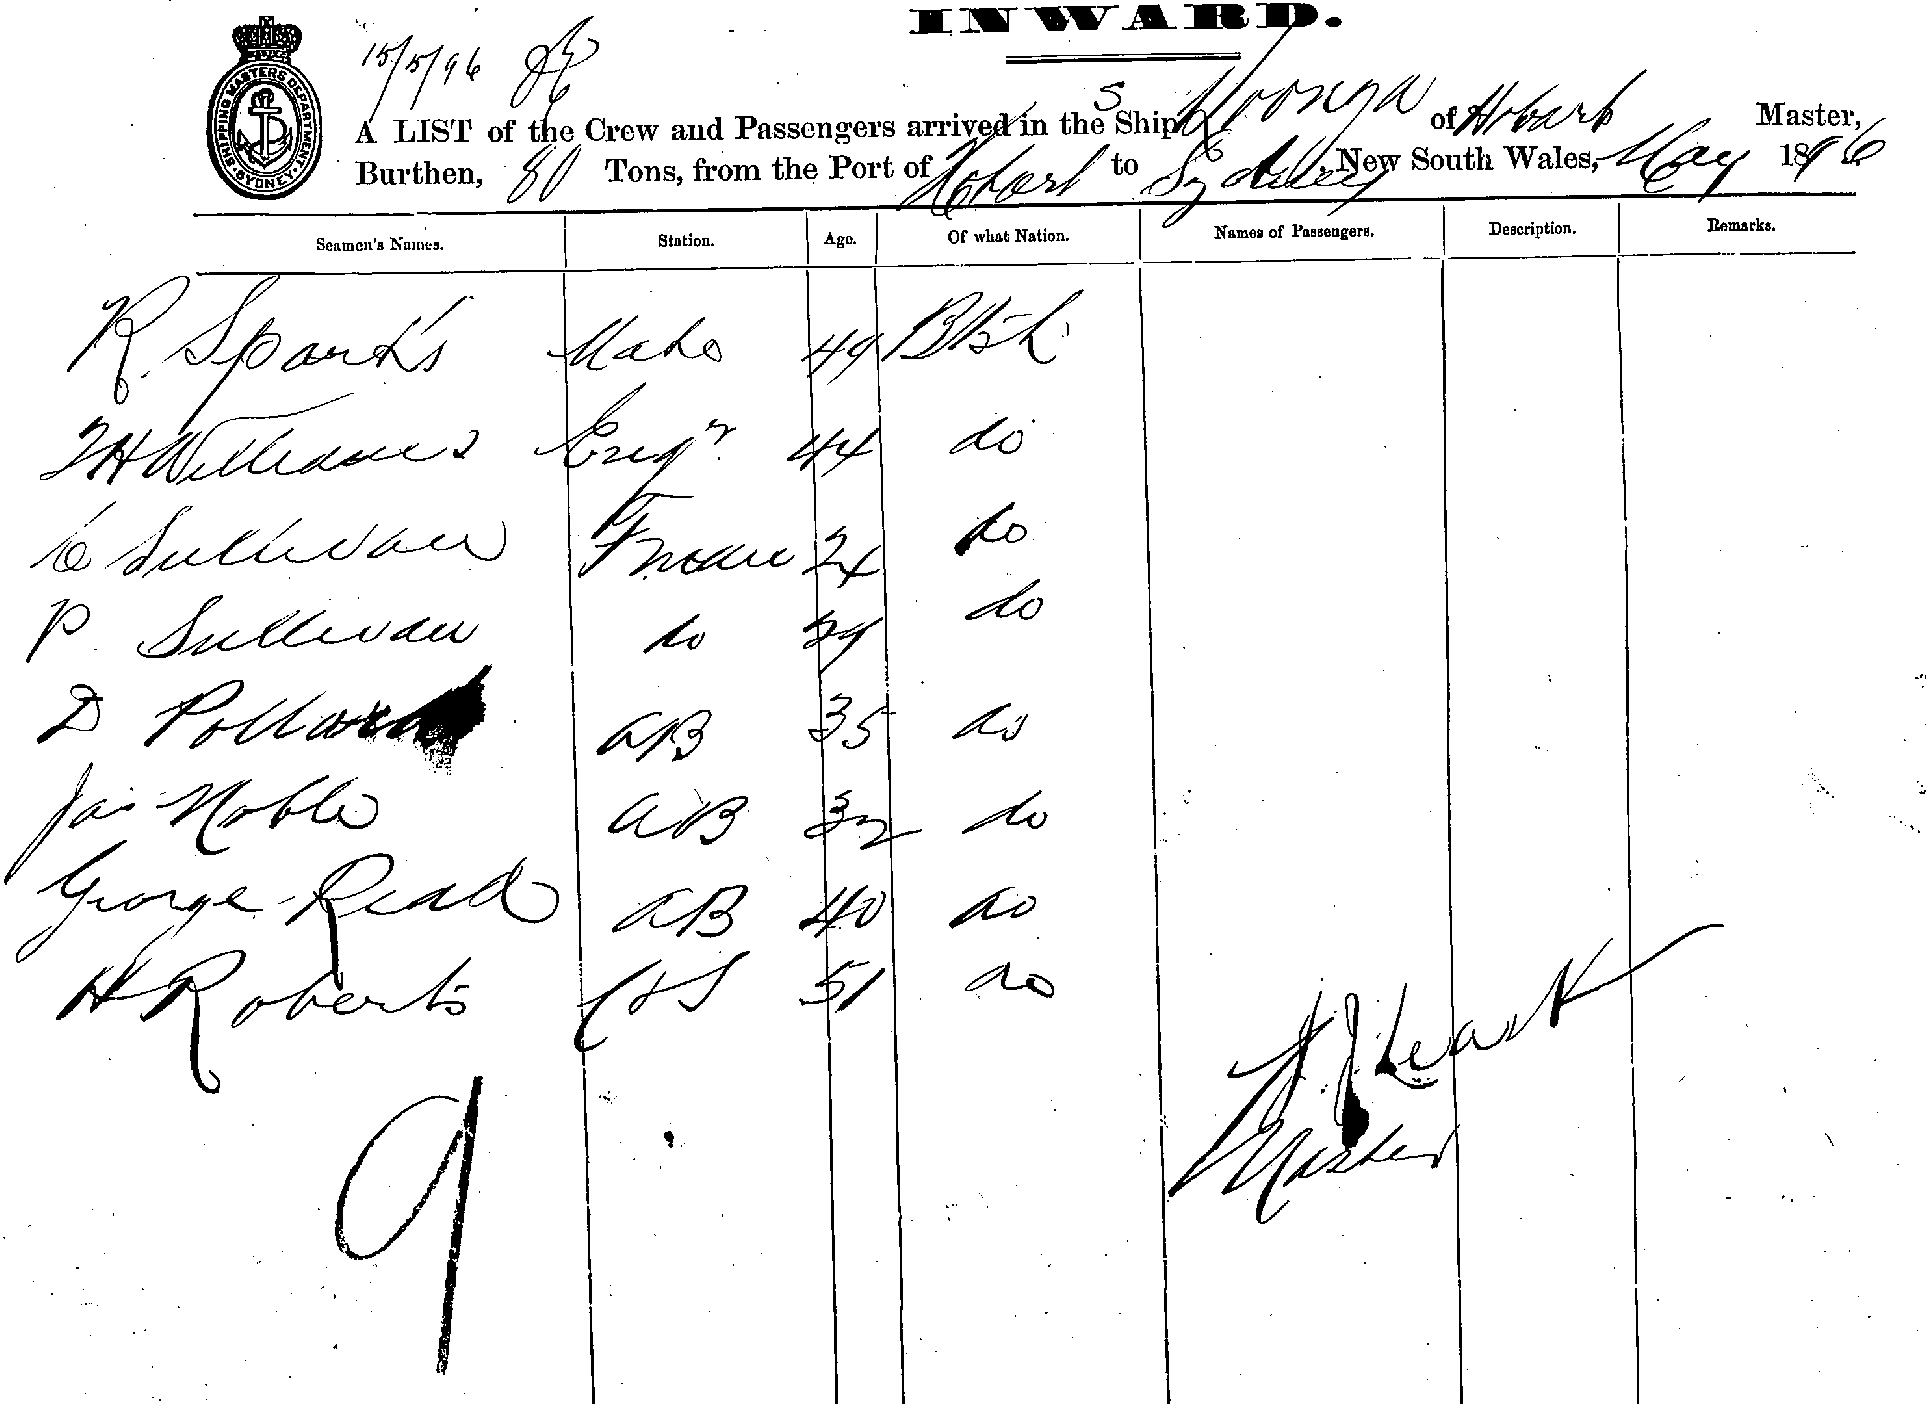 INWARD.
15/5/96
SHIPPING MASTERS DEPARTMENT SYDNEY
A LIST of the Crew and Passengers arrived in the S Ship Koonya of Hobart Master,
Burthen, 80 Tons, from the Port of Hobart to Sydney New South Wales, May 1896
Seamen's Names. Station. Age. Of what Nation. Names of Passengers. Description. Remarks.
R. Sparks Mate 49 Btsh
H Williams Engr. 44 do
C Sullivan Fman 24 do
P Sullivan do 29 do
D Pollard AB 35 do
Jas Noble AB 32 do
George Read AB 40 do
H Roberts C&S 51 do
Master
9